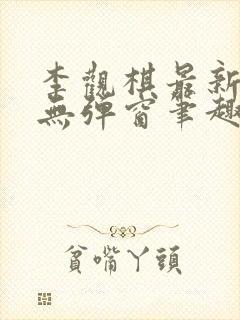 李觀棋最新
無彈窗筆趣
貧嘴丫頭